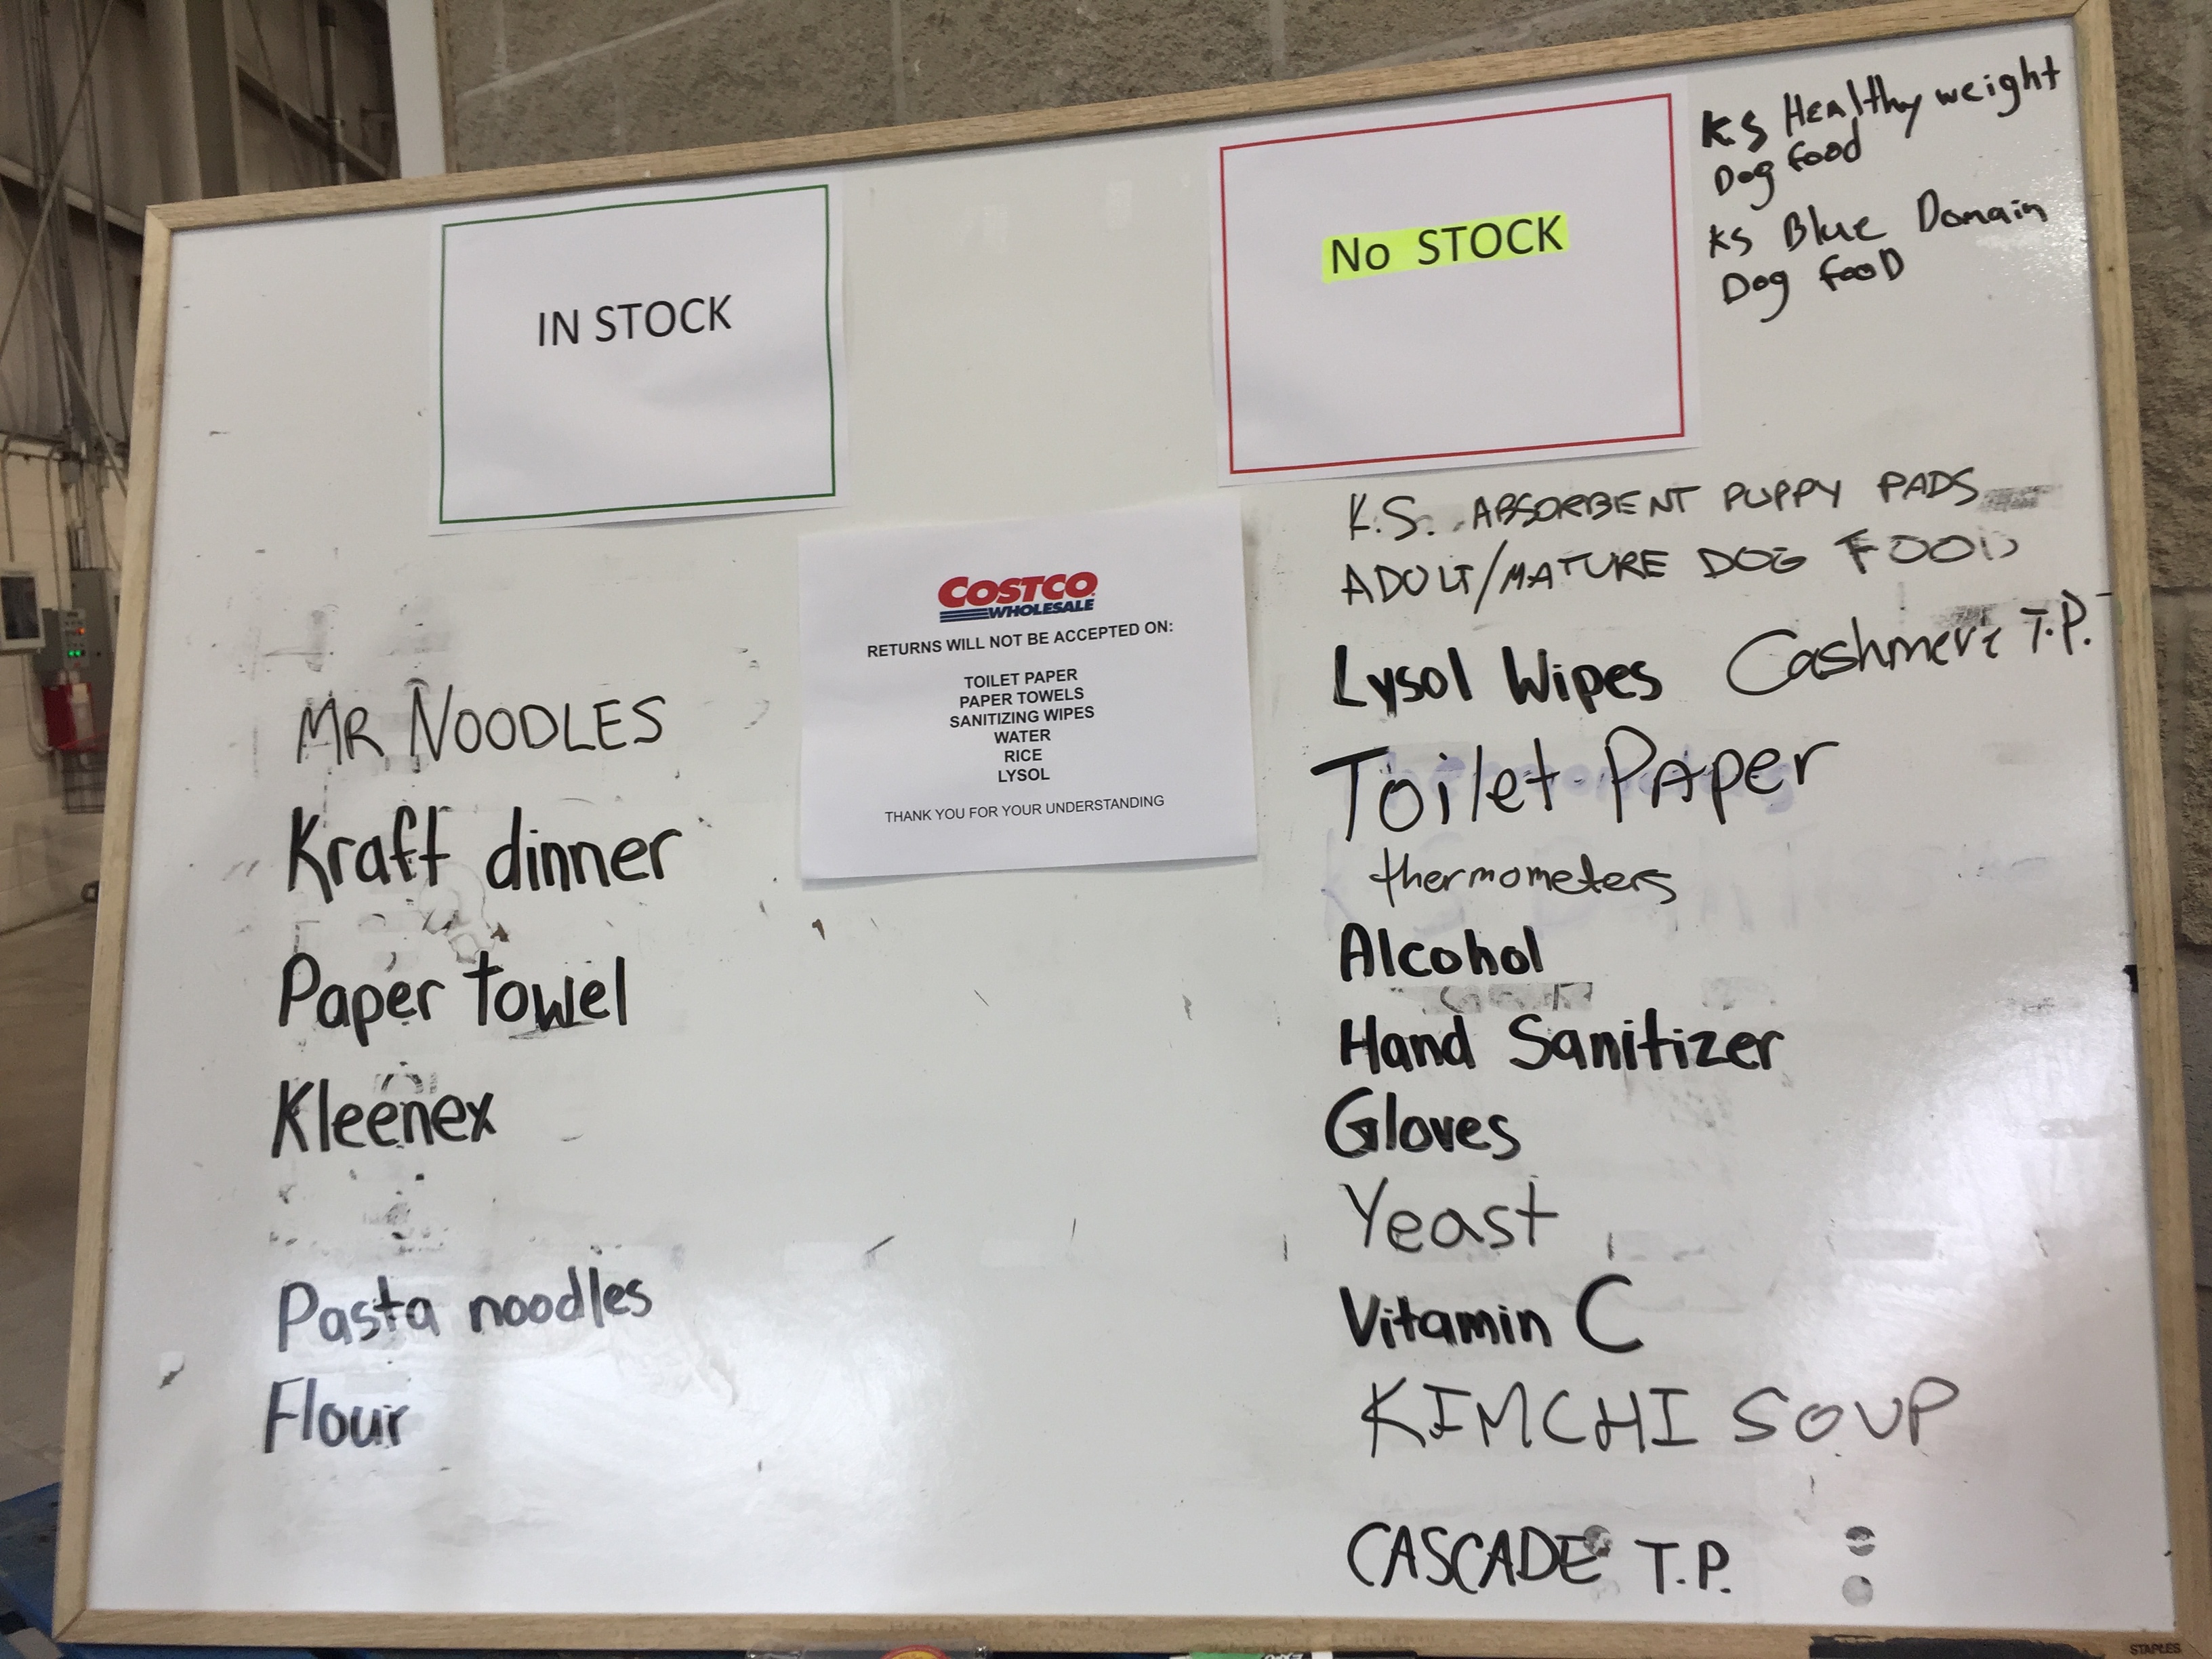 IN STOCK
MR NOODLES
Kraft dinner
Paper towel
Kleenex
Pasta noodles
Flour
COSTCO
WHOLESALE
RETURNS WILL NOT BE ACCEPTED ON:
TOILET PAPER
PAPER TOWELS
SANITIZING WIPES
WATER
RICE
LYSOL
THANK YOU FOR YOUR UNDERSTANDING
No STOCK
KS Healthy weight
Dog food
KS Blue Domain
Dog fooD
K.S. ABSORBENT PUPPY PADS
ADULT/MATURE DOG FOOD
Lysol Wipes Cashmere T.P.
Toilet PAper
thermometers
Alcohol
Hand Sanitizer
Gloves
Yeast
Vitamin C
KIMCHI SOUP
CASCADE T.P.
STAPLES